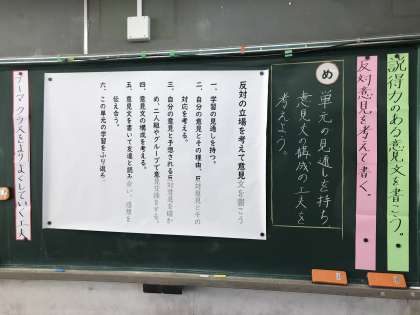 説得力のある意見文を書こう。
反対意見を考えて書く。
め
単元の見通しを持ち、
意見文の構成の工夫を
考えよう。
反対の立場を考えて意見文を書こう
一、学習の見通しを持つ。
二、自分の意見とその理由、反対意見とその
対応を考える。
三、自分の意見と予想される反対意見を確か
め、二人組やグループで意見交換をする。
四、意見文の構成を考える。
五、意見文を書いて友達と読み合い、感想を
伝え合う。
六、この単元の学習をふり返ろ
よりよくしていく工夫